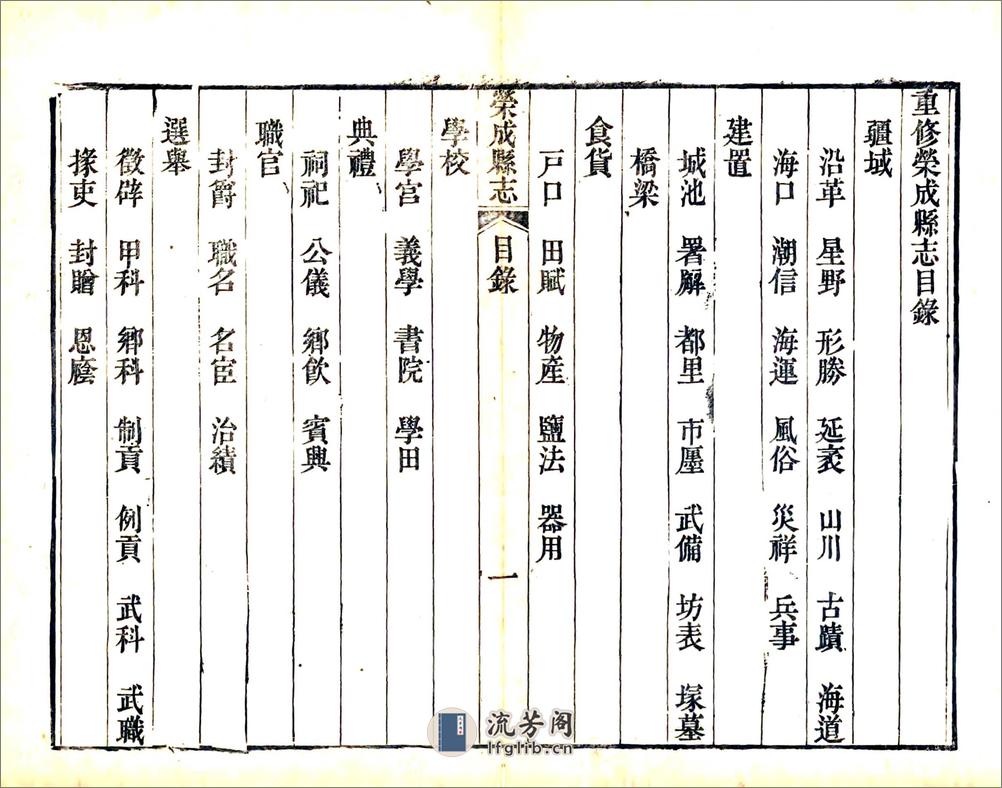 重修榮成縣志目錄
疆域
沿革 星野 形勝 延袤 山川 古蹟 海道
海口 潮信 海運 風俗 災祥 兵事
建置
城池 署廨 都里 市廛 武備 坊表 塚墓
橋梁
食貨
戸口 田賦 物産 鹽法 器用
榮成縣志 目錄 一
學校
學宮 義學 書院 學田
典禮
祠祀 公儀 鄉飲 賓興
職官
封爵 職名 名宦 治績
選舉
徵辟 甲科 鄉科 制貢 例貢 武科 武職
掾吏 封贈 恩廕
流芳阁
lfglib.cn